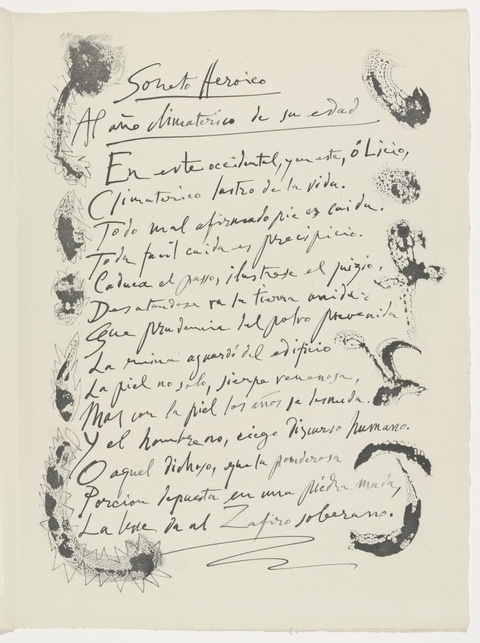 Soneto Heroico
Al año climaterico de su edad
En este occidental, y en este, ô Licio,
Climaterico lustro de la vida.
Todo mal afirmado pie es caida.
Toda facil caida es precipicio.
Caduca el passo, ilustrese el juizio,
Desatandose va la tierra unida:
Que prudencia del polvo prevenida
La ruina aguardó del edificio
La piel no solo, sierpe venenosa,
Mas con la piel los años se desnuda.
Y el hombre no, ciego discurso humano.
O aquel dichoso, que la ponderosa
Porcion depuesta en una piedra muda,
La leve da al Zafiro soberano.